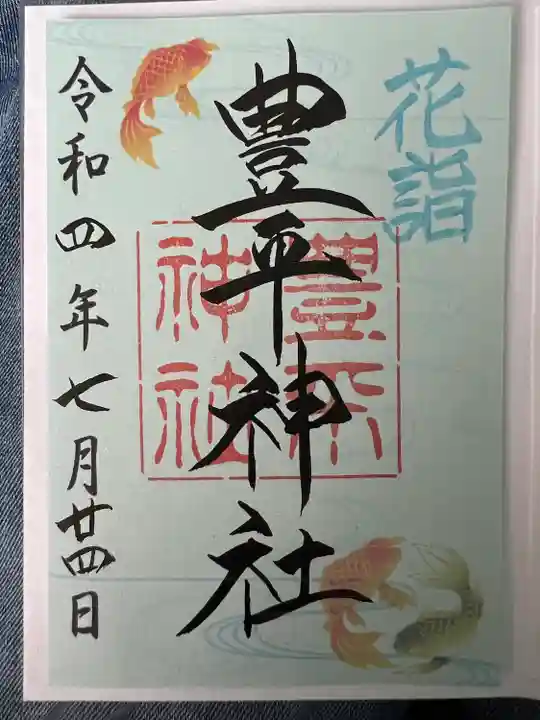 花詣
豊平神社
豊平神社
令和四年七月廿四日